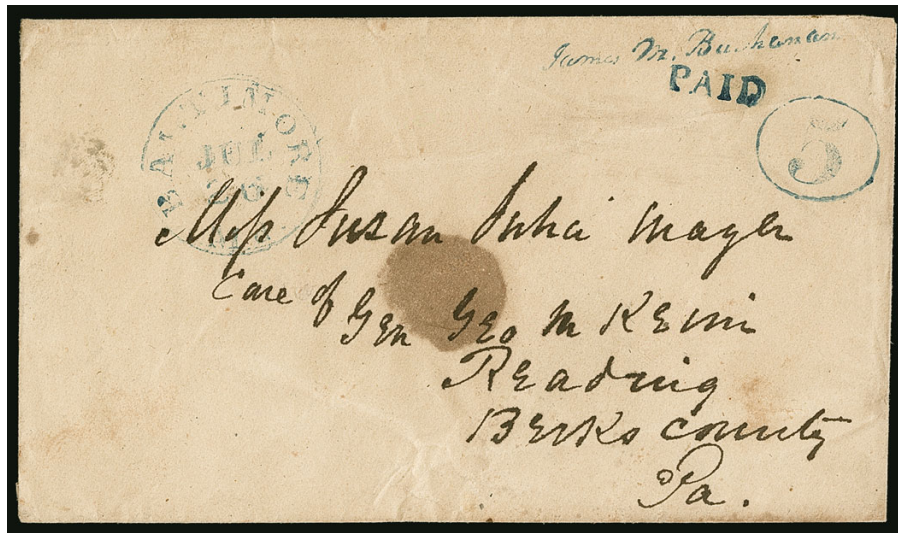 James M. Buchanan
PAID
5
BALTIMORE
JUL
Md.
Miss Susan Julia Mayer
Care of
Gen Geo M Keim
Reading
Berks County
Pa.